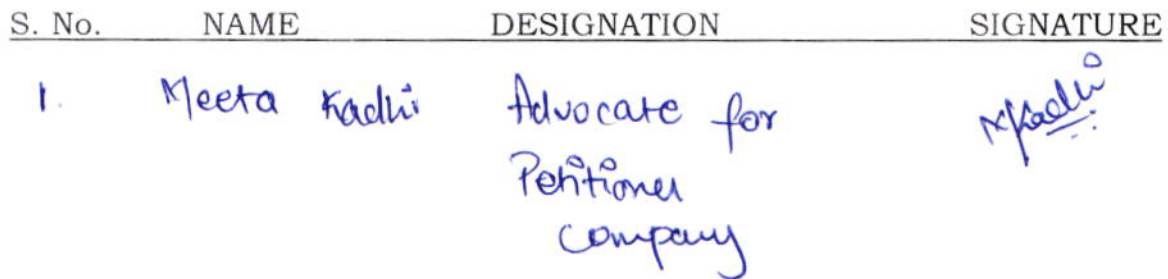 S. No. NAME DESIGNATION SIGNATURE
1. Meeta Kadhi Advocate for MKadhi
Petitioner
Company